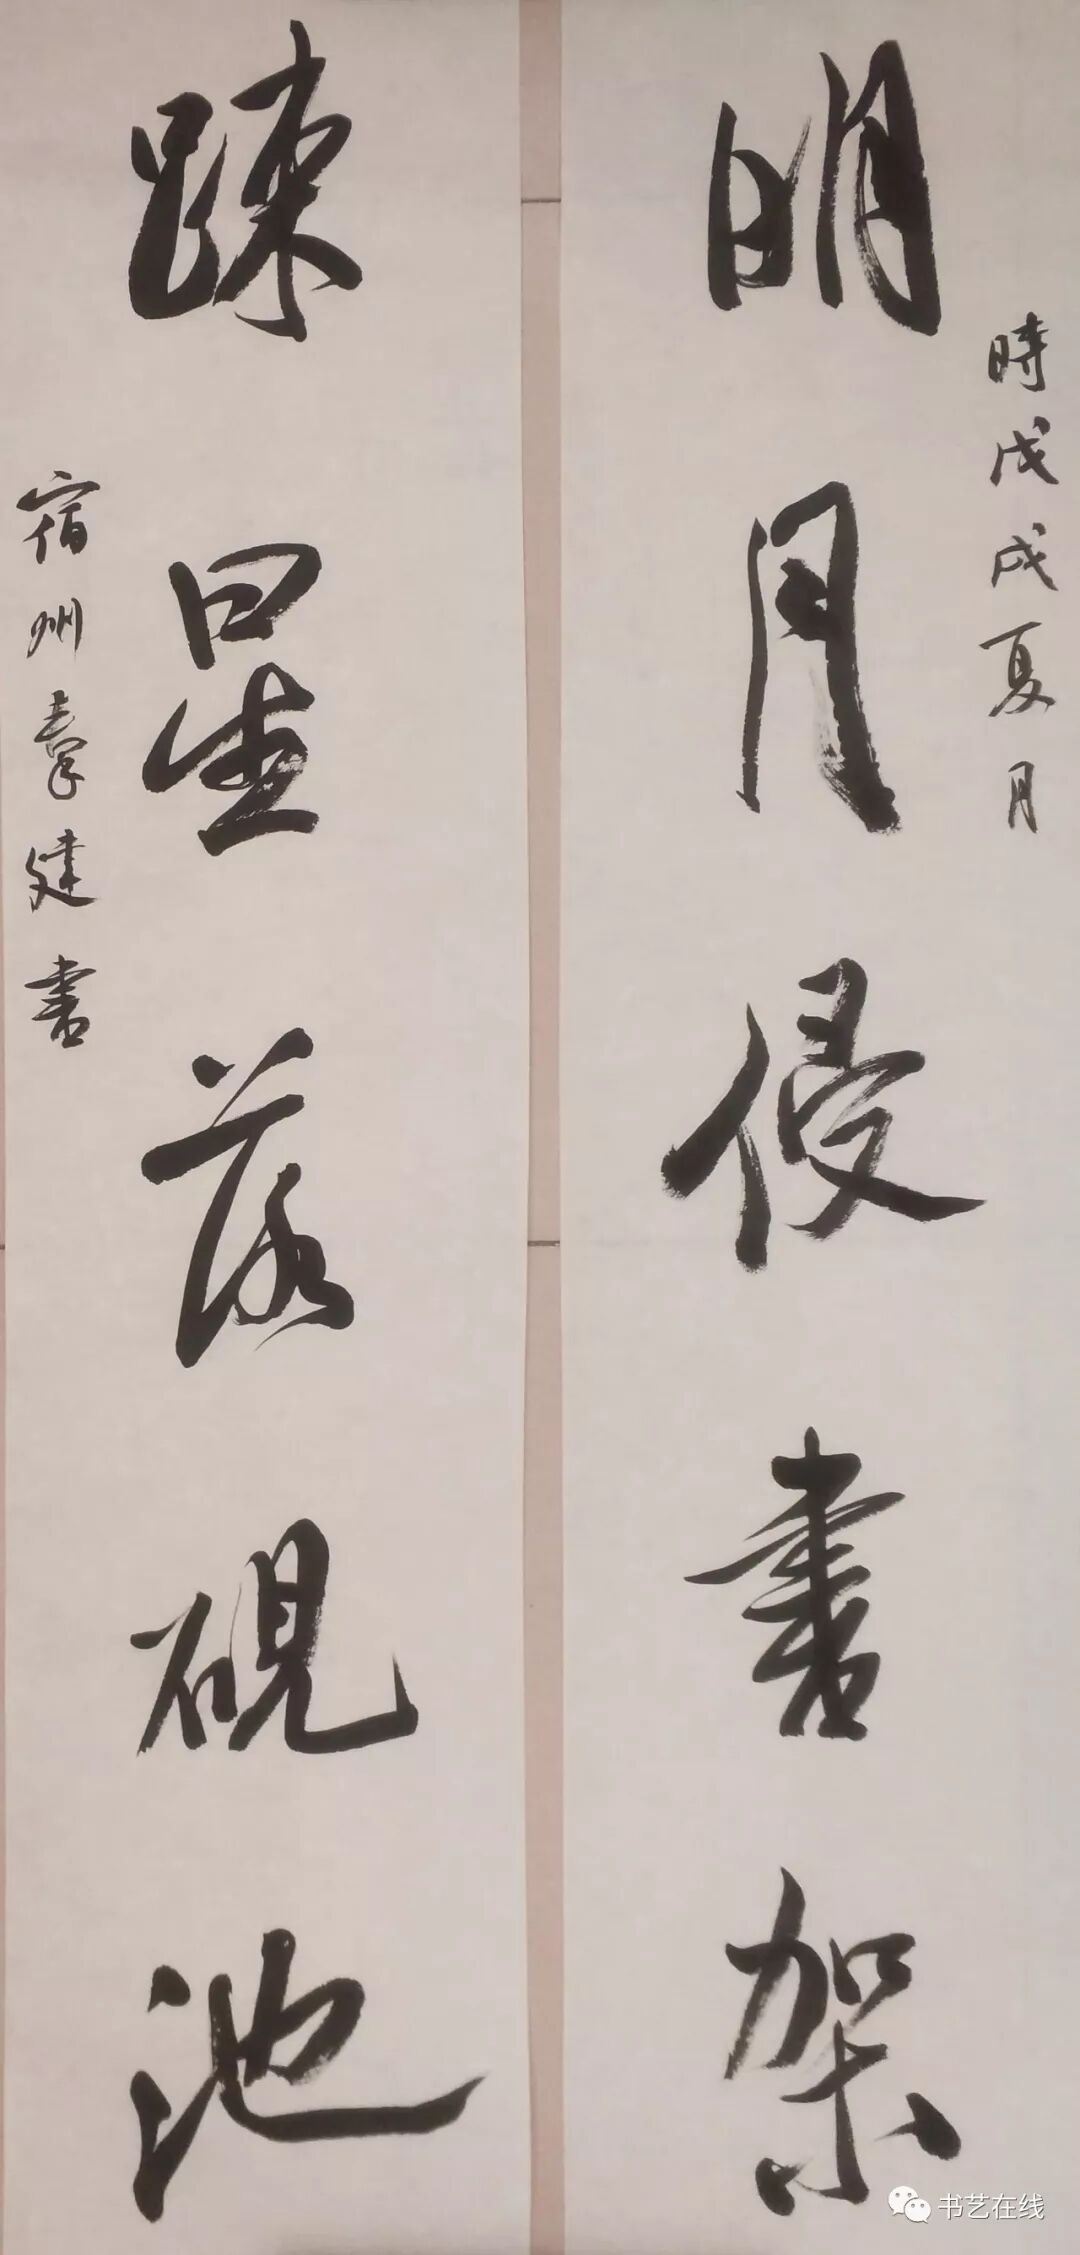 明月侵書架
時戊戌夏月
踈星落硯池
宿州 建書
书艺在线